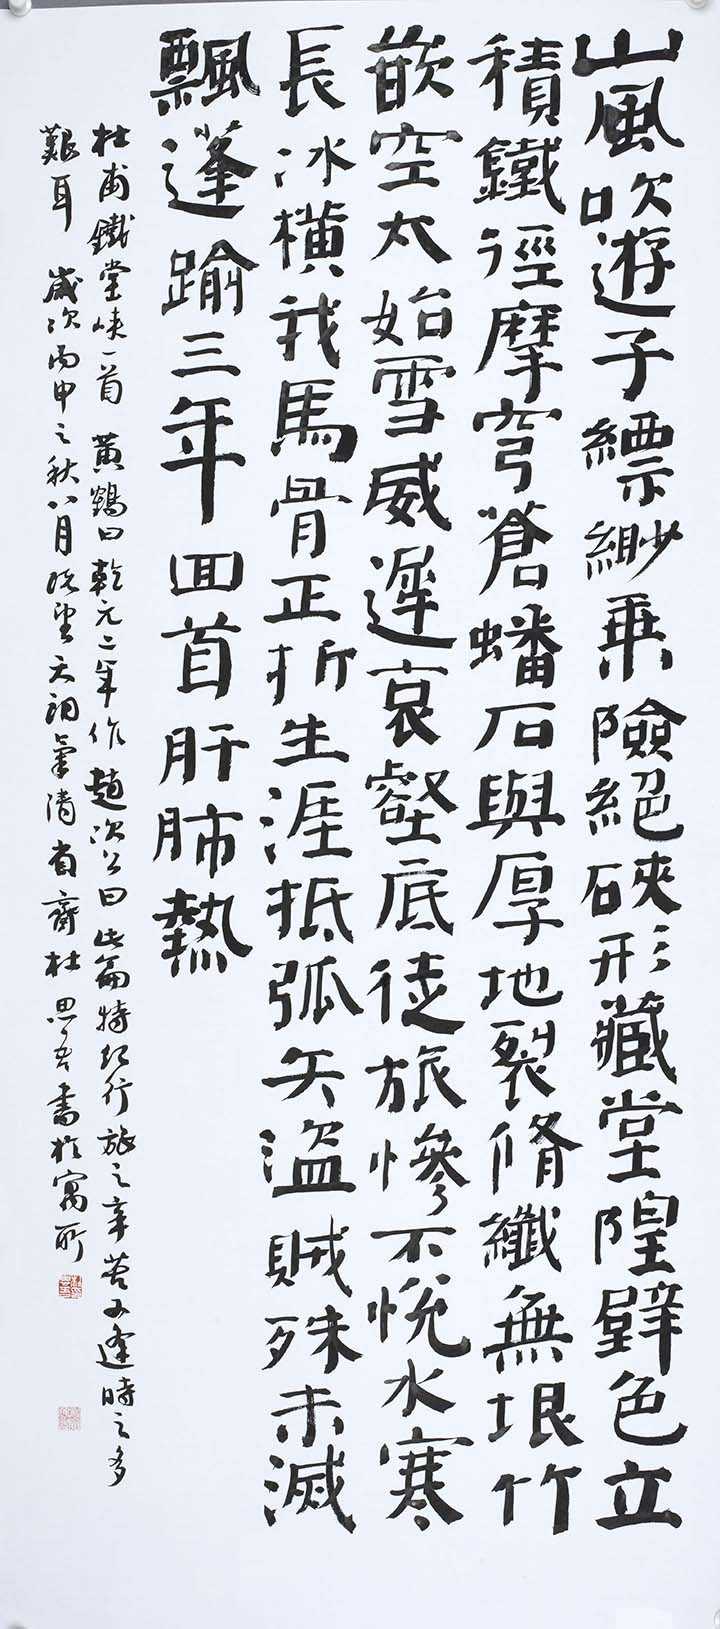 山風吹遊子縹緲乘險絕硤形藏堂隍壁色立
積鐵徑摩穹蒼蟠石與厚地裂脩纖無垠竹
嵌空太始雪威遲哀壑底徒旅慘不悅水寒
長冰橫我馬骨正折生涯抵弧矢盜賊殊未滅
飄蓬踰三年囬首肝肺熱
杜甫鐵堂峽一首 黃鶴曰乾元二年作趙次公曰此篇特紀行旅之辛苦又逢時之多
艱耳 歲次丙申之秋八月既望天朗氣清齋杜思書於寓所